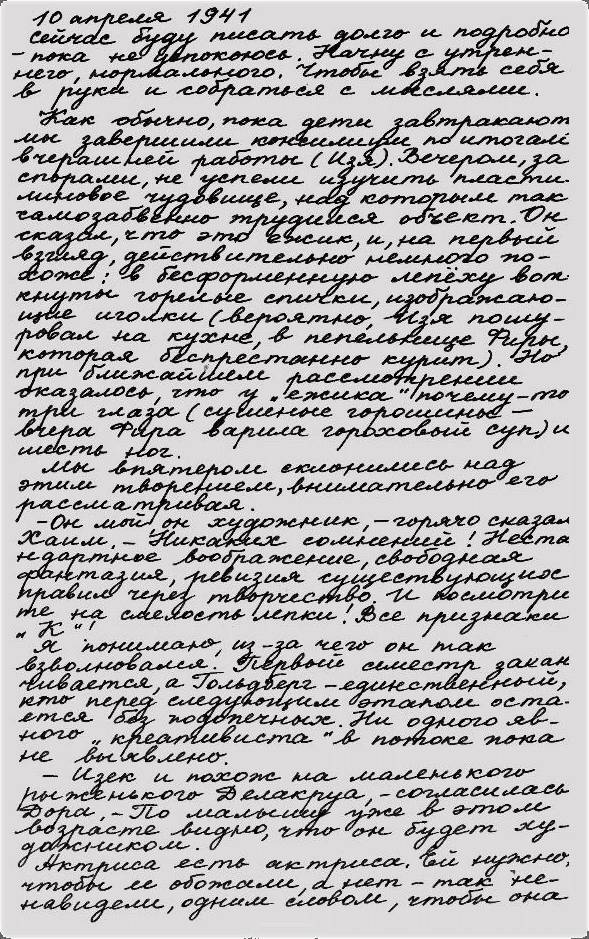 10 апреля 1941
Сейчас буду писать долго и подробно
– пока не успокоюсь. Начну с утрен-
него, нормального. Чтобы взять себя
в руки и собраться с мыслями.
Как обычно, пока дети завтракают
мы завершили консилиум по итогам
вчерашней работы (Изя). Вечером, за
спорами, не успели изучить пласти-
линовое чудовище, над которым так
самозабвенно трудился объект. Он
сказал, что это ёжик, и, на первый
взгляд, действительно немного по-
хоже: в бесформенную лепёху вот
кнуты горелые спички, изображаю-
щие иголки (вероятно, Изя пошу-
ровал на кухне, в пепельнице Фиры,
которая беспрестанно курит). Но
при ближайшем рассмотрении
оказалось, что у „ёжика“ почему-то
три глаза (сушеные горошины –
вчера Фира варила гороховый суп) и
шесть ног.
Мы впятером склонились над
этим творением, внимательно его
рассматривая.
–Он мой, он художник, – горячо сказал
Хаим. – Никаких сомнений! Неста
ндартное воображение, свободная
фантазия, ревизия существующих
правил через творчество. И посмотри
те на смелость лепки! Все признаки
„К“!
Я понимаю, из-за чего он так
взволновался. Первый семестр закан
чивается, а Гольдберг – единственный,
кто перед следующим этапом оста-
ется без подопечных. Ни одного яв-
ного „креативиста“ в потоке пока
не выявлено.
– Изек и похож на маленького
рыженького Делакруа, – согласилась
Дора. – По малышу уже в этом
возрасте видно, что он будет ху-
дожником.
Актриса есть актриса. Ей нужно,
чтобы ее обожали, а нет – так не-
навидели, одним словом, чтобы она